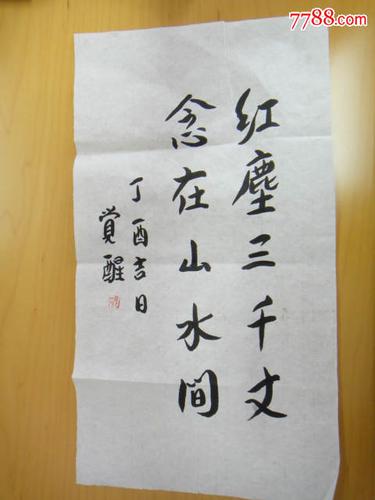 7788.com
红塵三千丈
念在山水間
丁酉吉日
覚醒